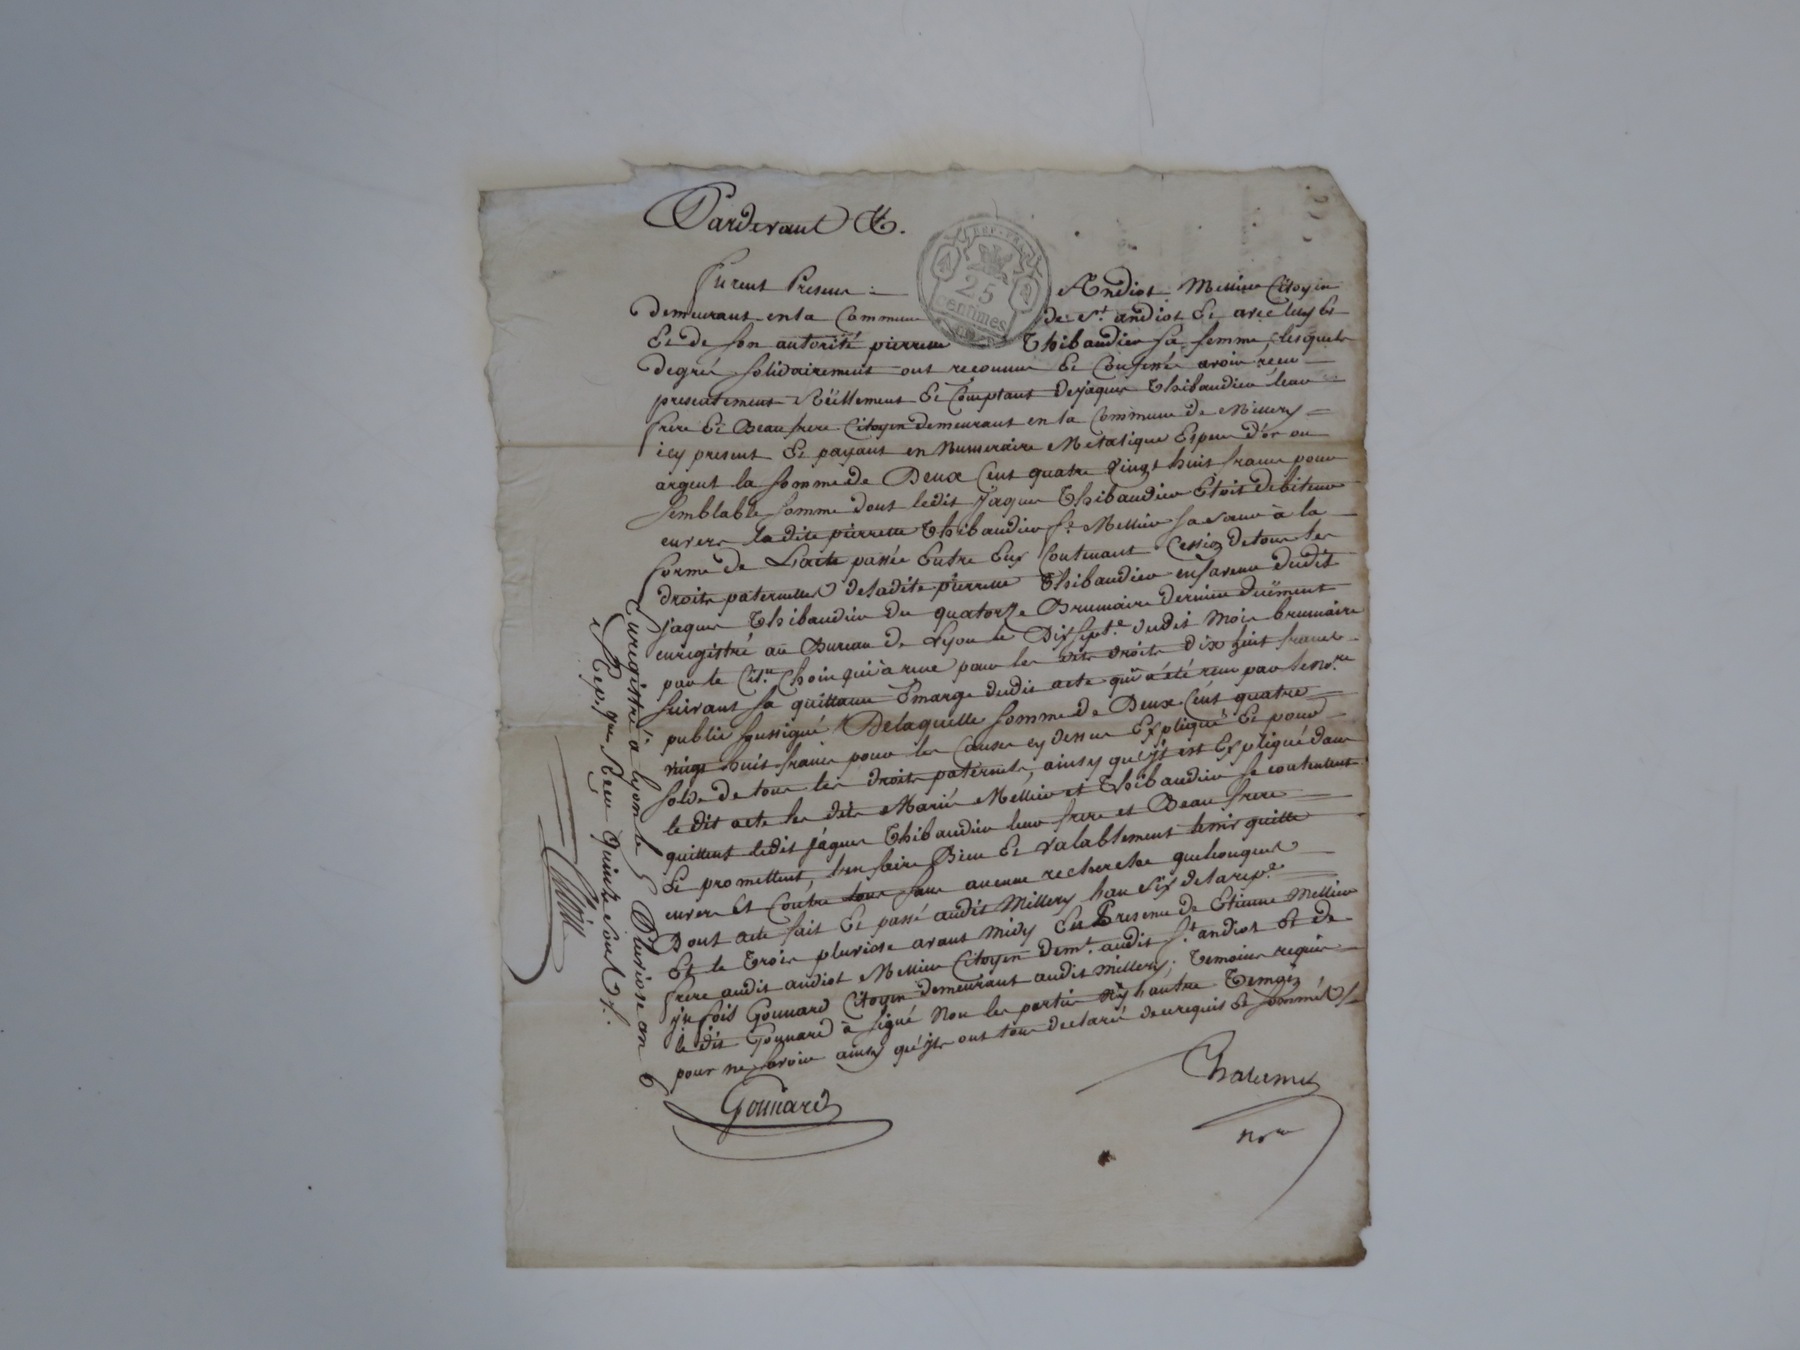 Pardevant &.
REP. FRA.
25
centimes
furent Presens : Andiot Mellier Citoyen
demeurant en la Commune de St andiol Et avec luy Et
Et de son autorité pierrette Thibaudier sa femme, lesquels
degrés solidairement ont reconnu Et Confessé avoir receu
presentement Réellement Et Comptant de jaques Thibaudier leur
frere Et Beau frere Citoyen demeurant en la Commune de Millery
icy present Et payant en Numeraire Metalique Especes d'or ou
argent la somme de Deux Cent quatre vingt huit francs pour
semblable somme dont ledit jaques Thibaudier Etoit debiteur
envers la dite pierrette Thibaudier fe Mellier sa soeur à la
forme de L'acte passée Entre Eux Contenant Cession de tous les
droits paternels de ladite pierrette Thibaudier en faveur dudit
jaques Thibaudier du quatorze Brumaire dernier duëment
enregistré au Bureau de Lyon le Dix sept.e dudit Mois brumaire
par le Cit.n Choin qui à receu pour les dits droits dix huit francs
suivant sa quittance Emarge dudit acte qui a été receu par le no.re
public soussigné / De laquelle somme de Deux Cent quatre
vingt huit francs pour les Causes cy dessus Expliqués Et pour
solde de tous les droits paternels, ainsy qu'il est Expliqué dans
le dit acte les dits Mariés Mellier et Thibaudier se contentent
quittent ledit jâques Thibaudier leur frere et Beau frere
Et promettent, l'en faire Bien Et valablement tenir quitte
envers Et Contre tous sans aucune recherche quelconques
Dont acte fait Et passé audit Millery l'an Six de la rep.e
Et le trois pluviose avant Midy En Presence de Etienne Mellier
frere audit andiot Mellier Citoyen dem.t audit St andiol Et de
fois Gounard Citoyen demeurant audit Millery ; temoins requis
le dit Gounard à signé Non les parties Ny l'autre Temoin
pour ne savoir ainsy qu'ils ont tous declaré de ce requis Et sommés /.
Gounard
Chalumet
nore
Enregistré à lyon le 5 Pluviose an 6
Rep.que Receu Quinze sous /.
Choin